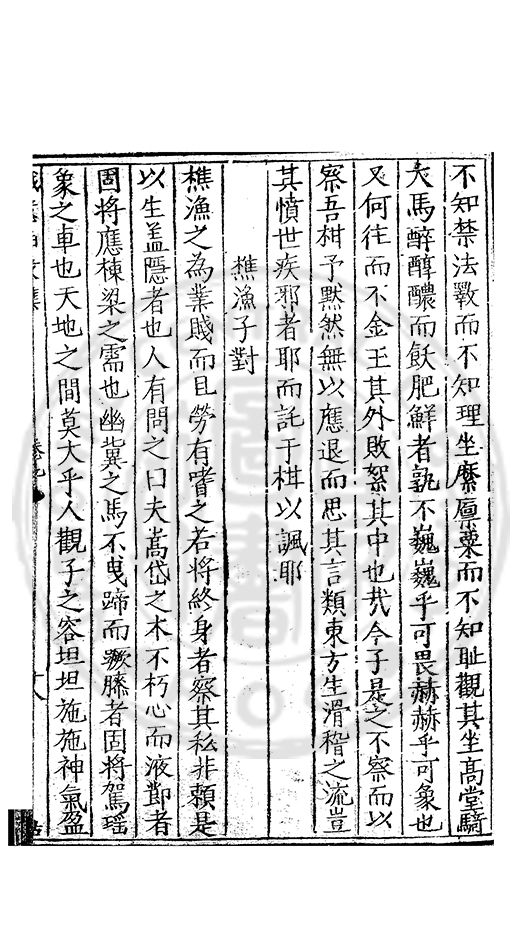 不知禁法斁而不知理坐縻廩粟而不知恥觀其坐高堂騎
大馬醉醇醲而飫肥鮮者孰不巍巍乎可畏赫赫乎可象也
又何往而不金玉其外敗絮其中也㢤今子是之不察而以
察吾柑予默然無以應退而思其言類東方生滑稽之流豈
其憤世疾邪者耶而託于柑以諷耶
樵漁子對
樵漁之為業賤而且勞有嗜之若將終身者察其私非賴是
以生盖隱者也人有問之曰夫嵩岱之木不朽心而液節者
固將應棟梁之需也幽冀之馬不曳蹄而蹶膝者固將駕瑶
象之車也天地之間莫大乎人觀子之容坦坦施施神氣盈